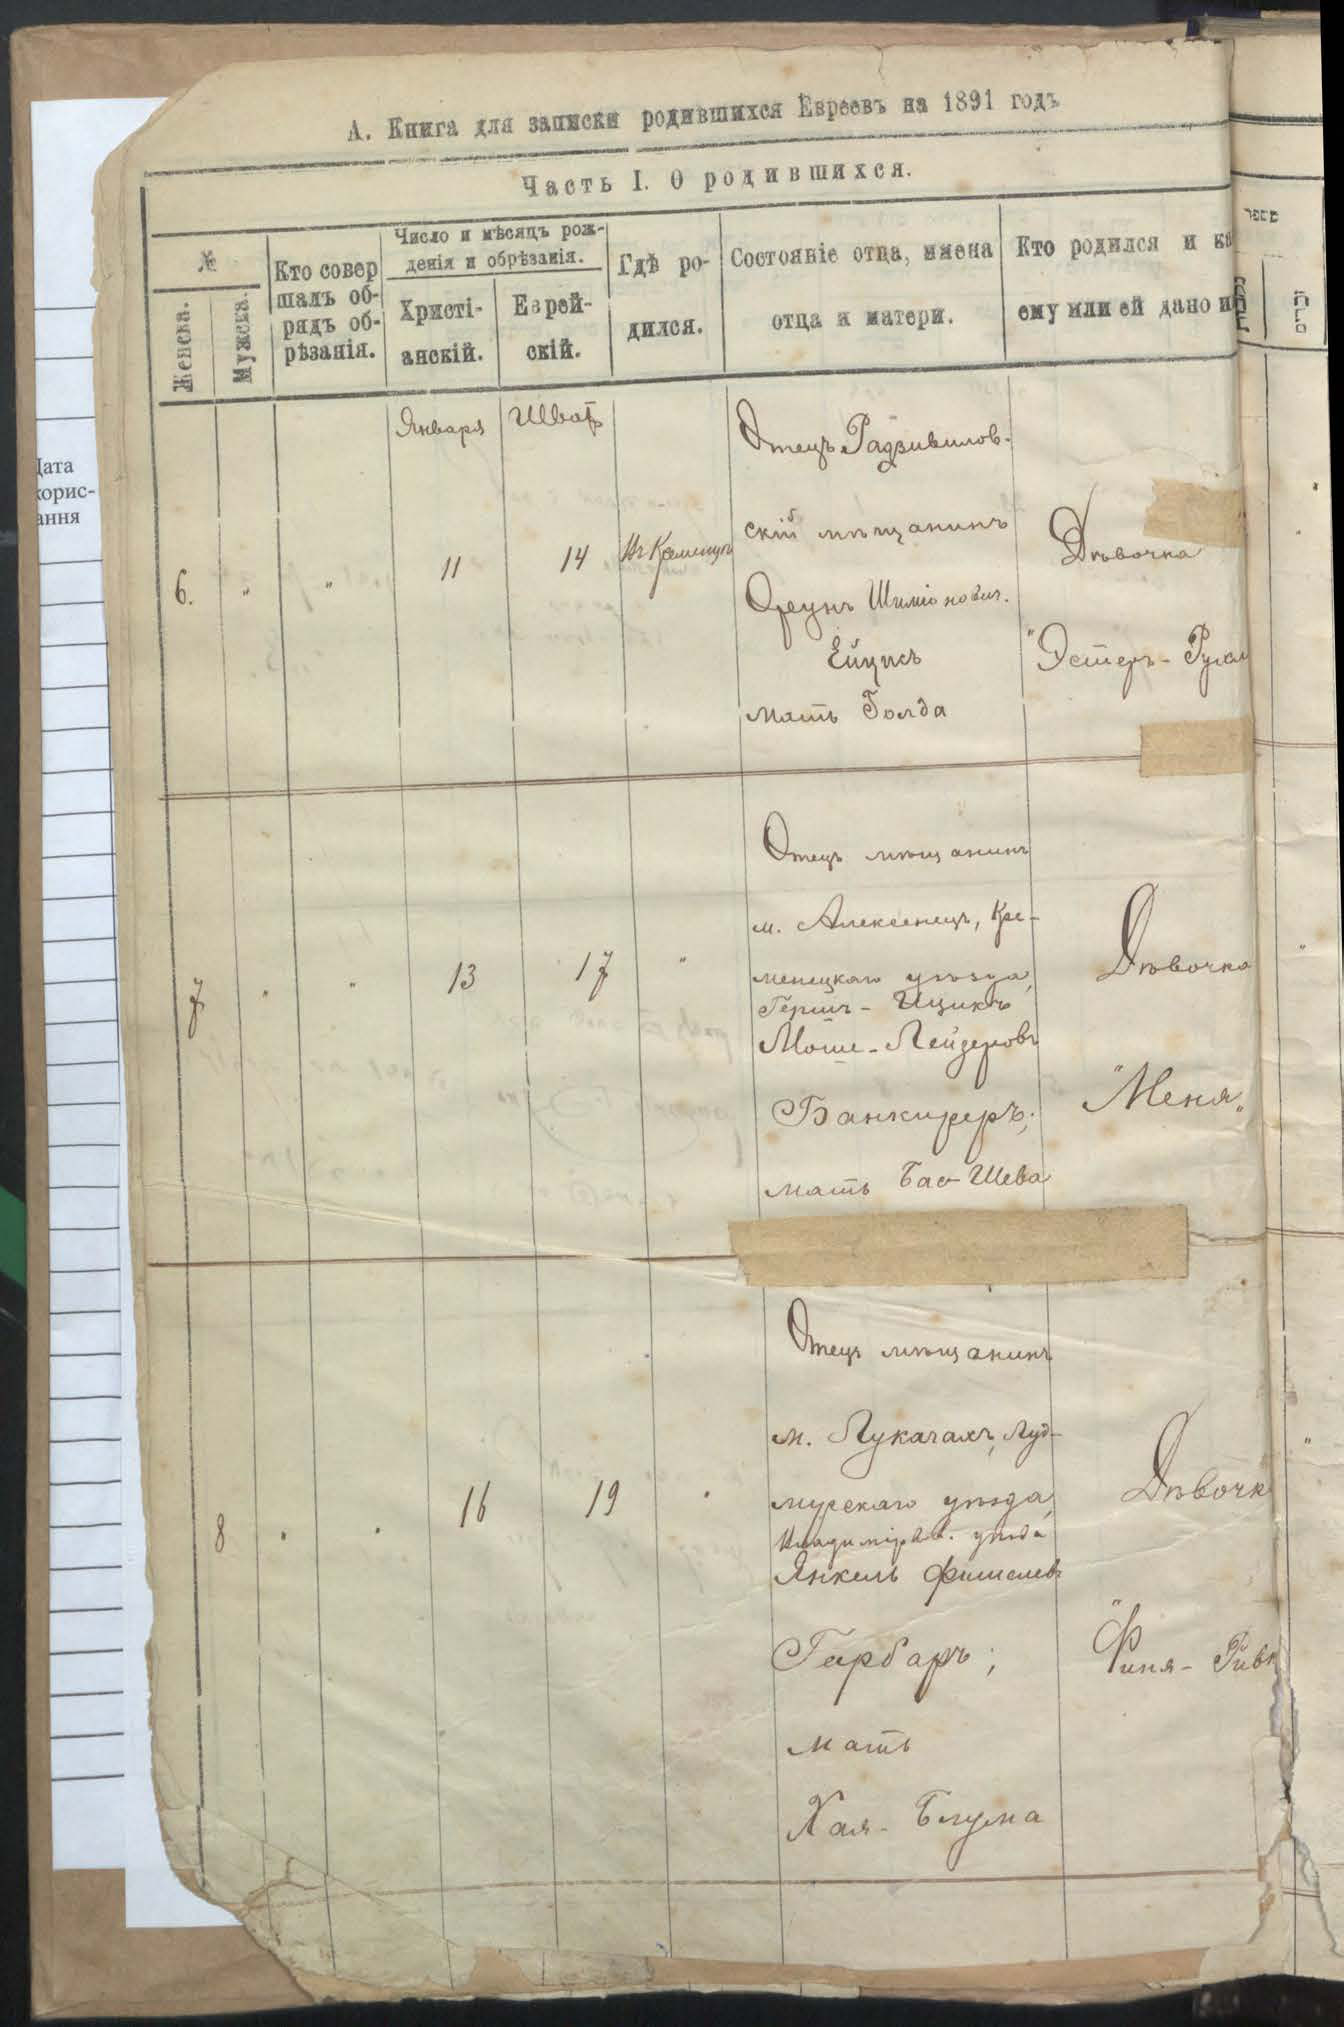 А. Книга для записки родившихся Евреевъ на 1891 годъ
Часть I. О родившихся.
№
Женска.
Мужска.
Кто совер
шалъ об-
рядъ об-
рѣзанія.
Число и мѣсяцъ рож-
денія и обрѣзанія.
Христі-
анскій.
Еврей-
скій.
Гдѣ ро-
дился.
Состояніе отца, имена
отца и матери.
Кто родился и ка
ему или ей дано и
Дата
корис-
ання
Января
Шватъ
6.
"
"
11
14
Отецъ Радзивилов-
скій мѣщанинъ
Шиміонович.
Ейцикъ
мать Голда
Дѣвочка
"Эстеръ-
7
"
"
13
17
"
Отецъ мѣщанинъ
м. Алексенецъ, Кре-
менецкаго уѣзда,
Герш- Ицикъ
Мошe-Лейзеровъ
Банкиреръ;
мать Бас-Шева
Дѣвочка
"Меня"
8
"
"
16
19
"
Отецъ мѣщанинъ
м. Лукачахъ,
уѣзда,
уѣзда
Янкель Фишелевъ
Гарбаръ;
мать
Хая-Блума
Дѣвочк
"Финя-Ривк